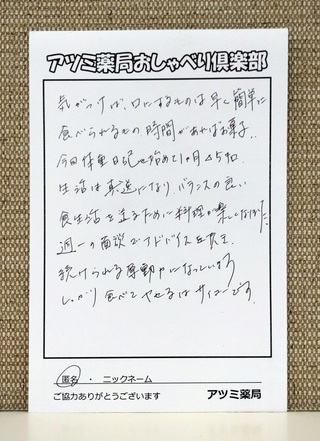 アツミ薬局おしゃべり倶楽部
気がつけば、口にするものは早く簡単に
食べられるもの 時間があればお菓子..
今回体重日記を始めて1ヶ月
生活は真逆になり、バランスの良い
食生活を送るために料理が楽しくなりました
週一の面談でアドバイスを
続けられる原動力になっている
しっかり食べてやせるはサイコーです。
匿名 ・ ニックネーム
ご協力ありがとうございます
アツミ薬局